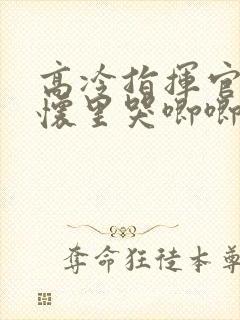 高冷指揮官
懷里哭唧唧
奪命狂徒本尊